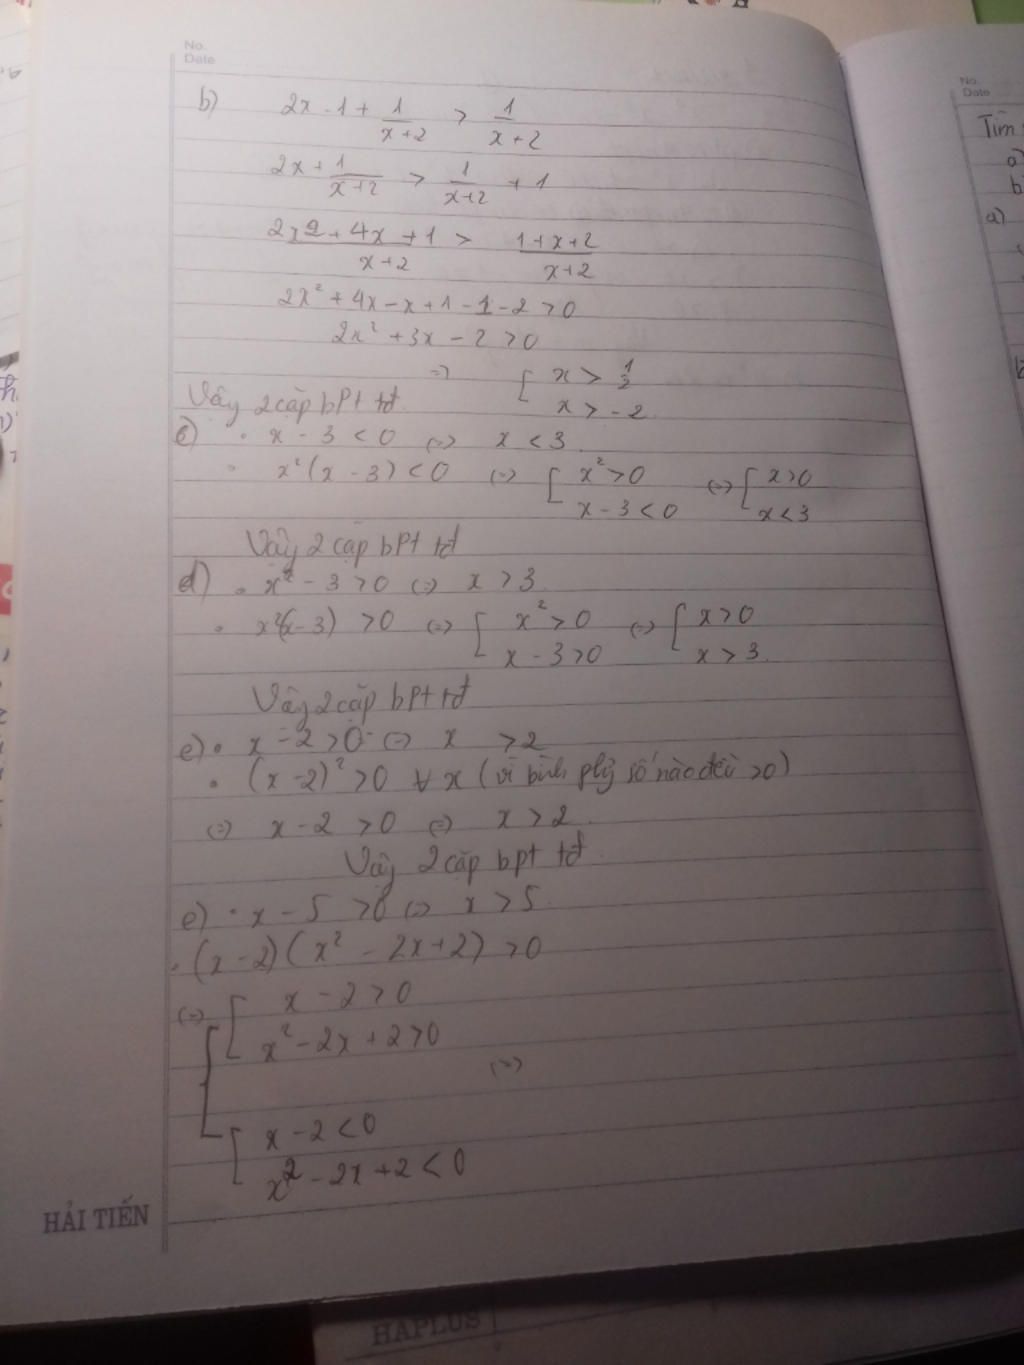 No.
Date
b) 2x - 1 + 1/(x+2) > 1/(x+2)
2x + 1/(x+2) > 1/(x+2) + 1
(2x2 + 4x + 1)/(x+2) > (1+x+2)/(x+2)
2x² + 4x - x + 1 - 1 - 2 > 0
2x² + 3x - 2 > 0
=> [ x > 1/2
x > -2
Vậy 2 cặp bpt tđ
c) • x - 3 < 0 (=) x < 3
• x² (x - 3) < 0 (=) [ x² > 0 (=) [ x > 0
x - 3 < 0 x < 3
Vậy 2 cặp bpt tđ
d) • x² - 3 > 0 (=) x > 3
• x²(x - 3) > 0 (=) [ x² > 0 (=) [ x > 0
x - 3 > 0 x > 3
Vậy 2 cặp bpt tđ
e) • x - 2 > 0 (=) x > 2
• (x - 2)² > 0 ∀ x (vì bình số nào đều > 0)
(=) x - 2 > 0 (=) x > 2
Vậy 2 cặp bpt tđ
e) • x - 5 > 0 (=) x > 5
• (x - 2)(x² - 2x + 2) > 0
(=) [ [ x - 2 > 0
x² - 2x + 2 > 0
(=)
[ x - 2 < 0
x² - 2x + 2 < 0
HẢI TIẾN
HAPLUS
No.
Date
Tìm
a)
b
a)